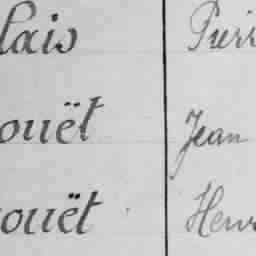 lais Pierr
ouët Jean
ouët Henr